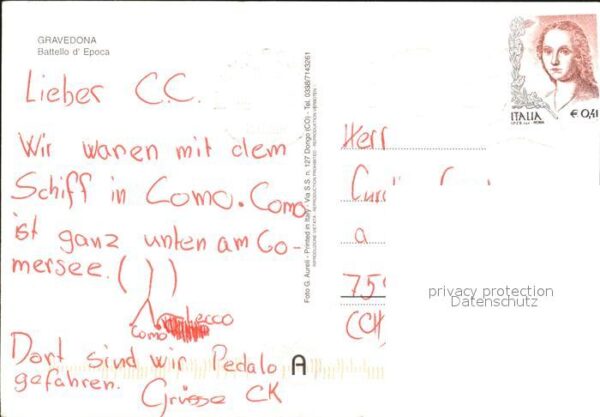 GRAVEDONA
Battello d' Epoca
Lieber C.C.
Wir waren mit dem
Schiff in Como. Como
ist ganz unten am Co-
mersee. ( )
Lecco
Como
Dort sind wir Pedalo
gefahren. Grüsse CK
Foto G. Aureli - Printed in Italy - Via S.S. n. 127 Dongo (CO) - Tel. 0338/7143261
RIPRODUZIONE VIETATA - REPRODUCTION PROHIBITED - REPRODUCTION VERBOTEN
A
ITALIA
€ 0,41
Herr
a
75
CCH
privacy protection
Datenschutz